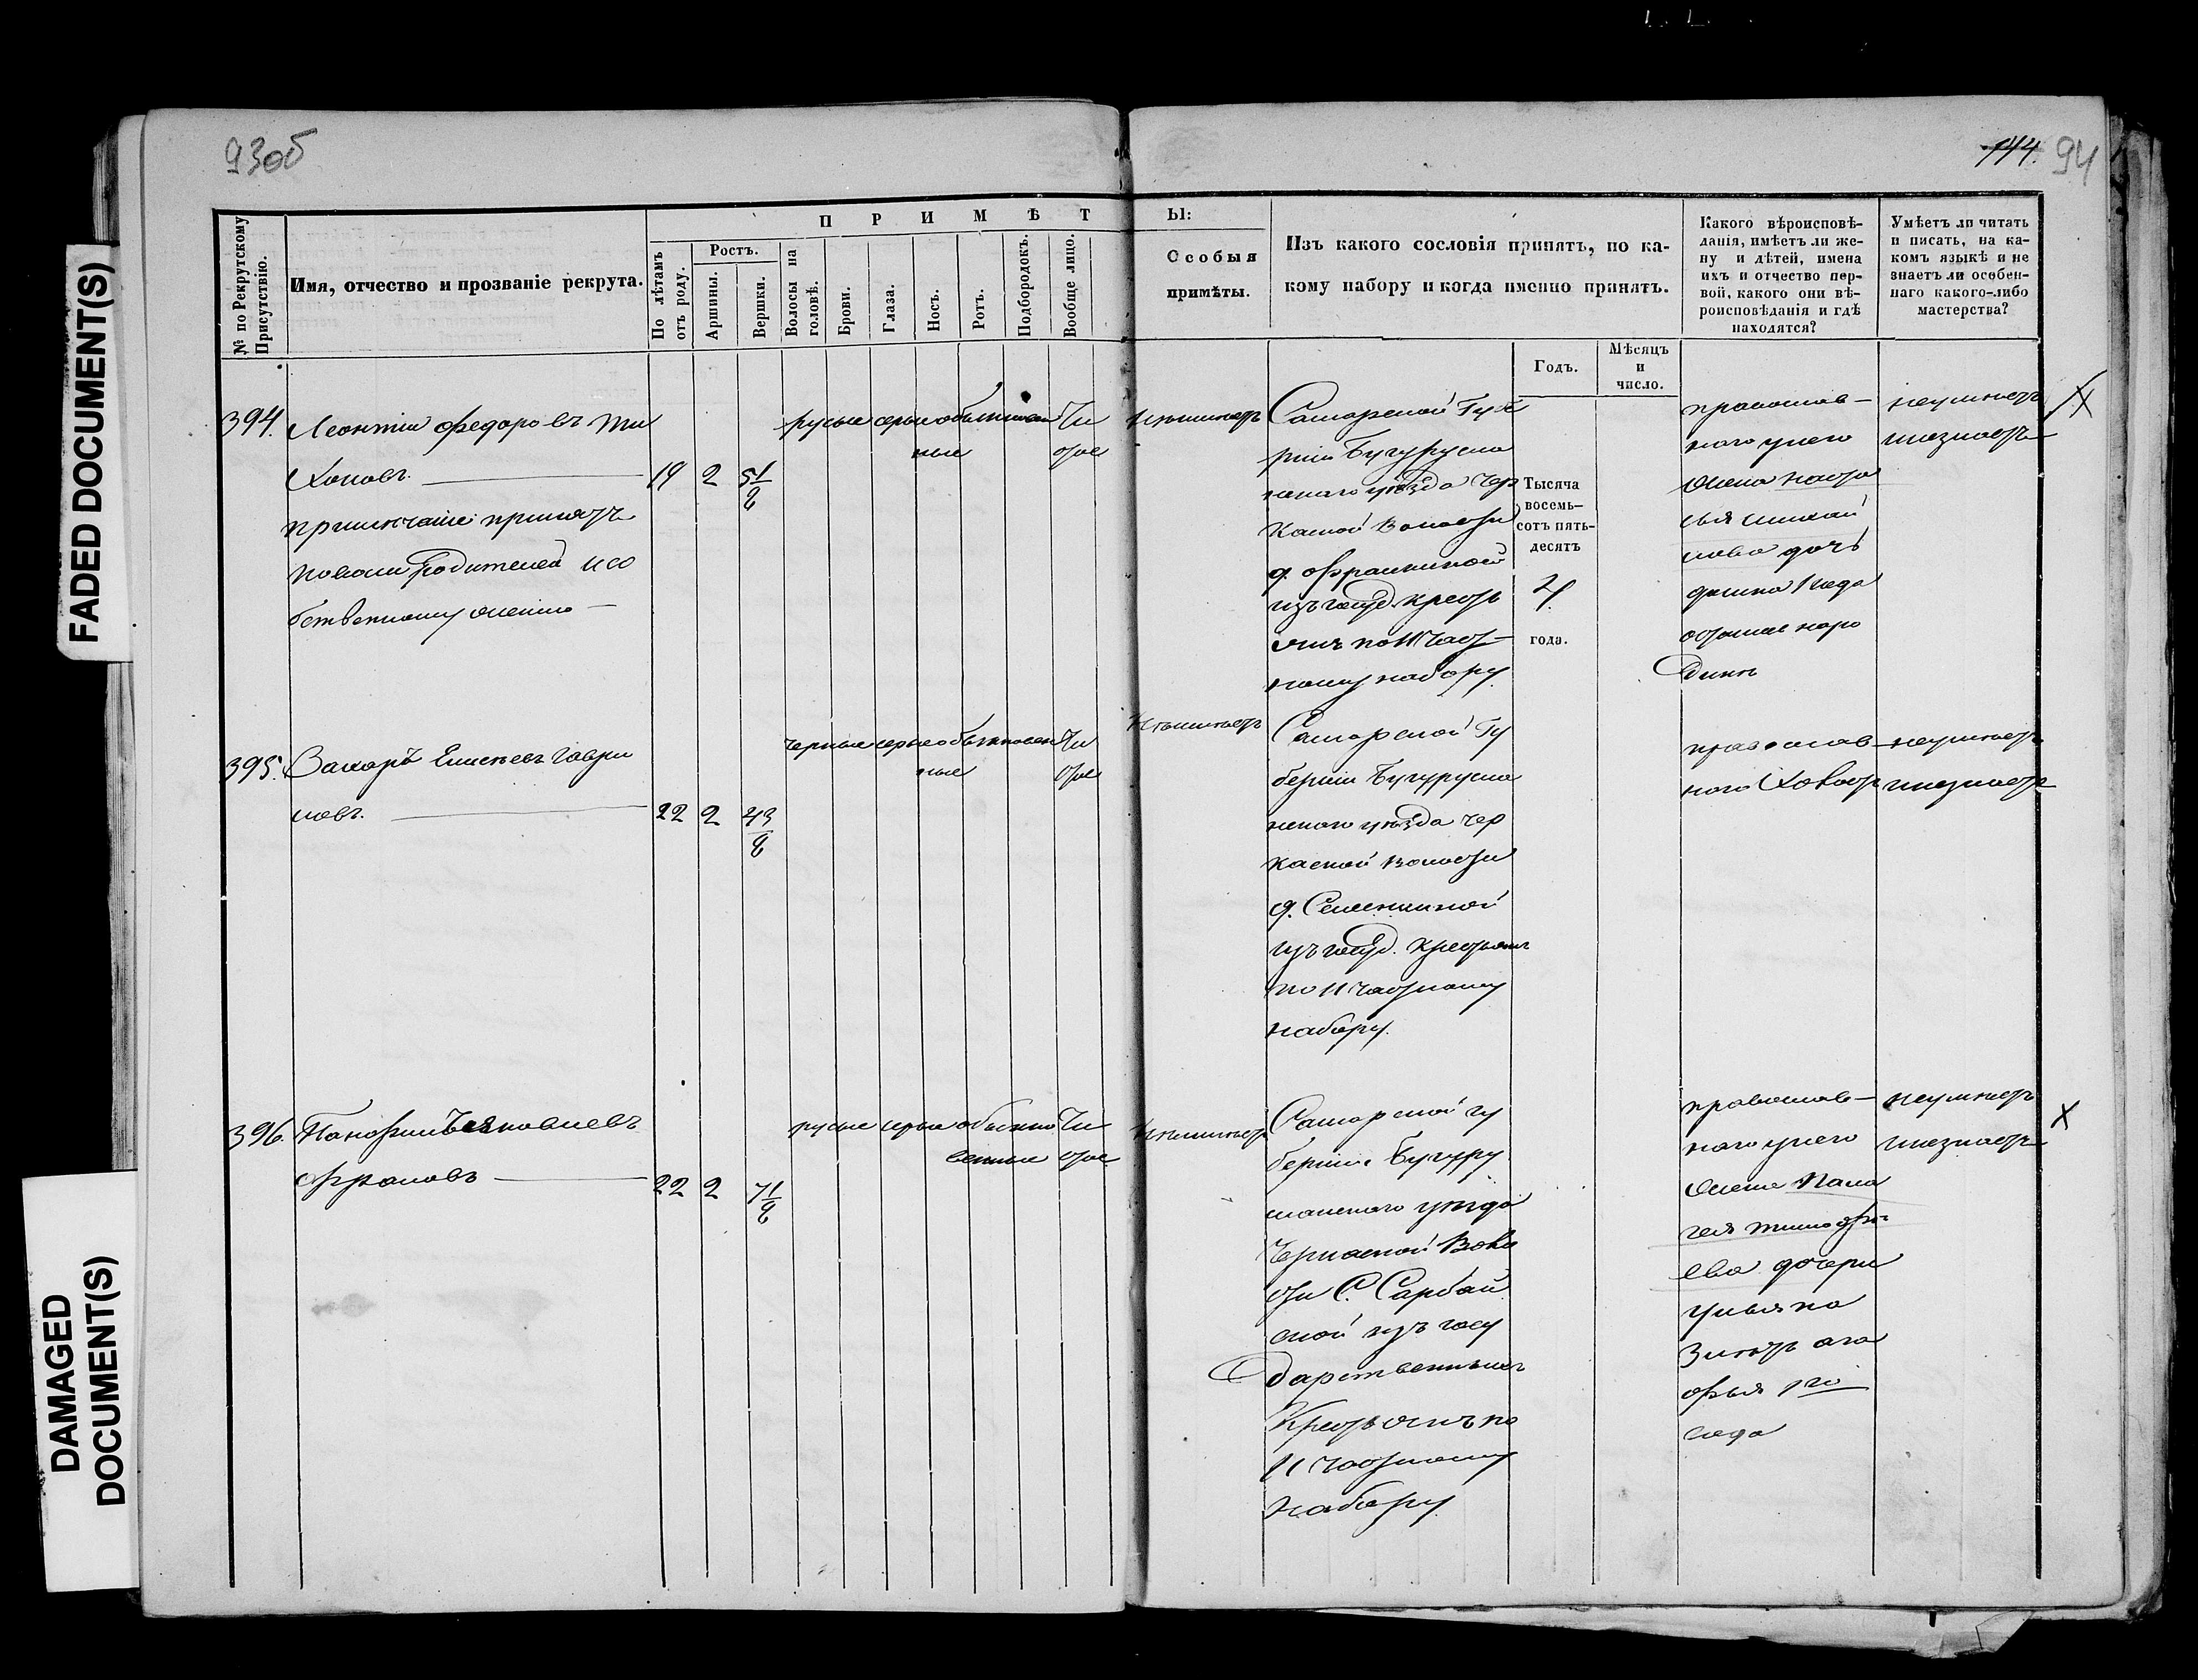 FADED DOCUMENT(S)
DAMAGED
DOCUMENT(S)
93об
144. 94
№ по Рекрутскому
Присутствію.
Имя, отчество и прозваніе рекрута.
ПРИМѢТ
По лѣтамъ
отъ роду.
Ростъ.
Аршины.
Вершки.
Волосы на
головѣ.
Брови.
Глаза.
Носъ.
Ротъ.
Подбородокъ.
Вообще лицо.
Ы:
Особыя
примѣты.
Изъ какого сословія принятъ, по ка-
кому набору и когда именно принятъ.
Годъ.
Мѣсяцъ
и
число.
Какого вѣроисповѣ-
данія, имѣетъ ли же-
ну и дѣтей, имена
ихъ и отчество пер-
вой, какого они вѣ-
роисповѣданія и гдѣ
находятся?
Умѣетъ ли читать
и писать, на ка-
комъ языкѣ и не
знаетъ ли особен-
наго какого-либо
мастерства?
394.
Леонтій Федоровъ Ти
хоновъ.
примѣчаніе принятъ
по воли родителей и со
бственному желанію
19 2 5 1/8
русые серые обыкновен
ные
Чи
стое
Неимѣетъ
Самарской Губе
рніи Бугурусла
нскаго уѣзда Чер
каской волости
д.
изъ госуд. крест
янъ по 11 част-
ному набору
Тысяча
восемь-
сотъ пять-
десятъ
4
года.
православ-
наго у него
жена Наста
сья Михай
лова дочь
1 года
остались на ро
динѣ
неумѣетъ
и незнаетъ
X
395.
Захаръ Елисѣевъ Гаври
ловъ.
22 2 4 3/8
черные серые обыкновен
ные
Чи
стое
Неимѣетъ
Самарской Гу
берніи Бугурусла
нскаго уѣзда Чер
каской волости
д. Семенкиной
изъ госуд. крестьянъ
по 11 частному
набору.
православ-
наго Холостъ
неумѣетъ
и незнаетъ
396.
22 2 7 1/8
русые серые обыкно
венные
Чи
стое
Неимѣетъ
Самарской гу
берніи Бугуру
сланского уѣзда
Черкаской Воло
сти С. Сарбай
ской изъ госу
дарственныхъ
Крестьянъ по
11 частному
набору.
православ-
наго у него
жена Пела
гея Тимофѣ-
ева дочери
Ульяна
3 лѣтъ Ага
фья 1го
года
неумѣетъ
и незнаетъ
X